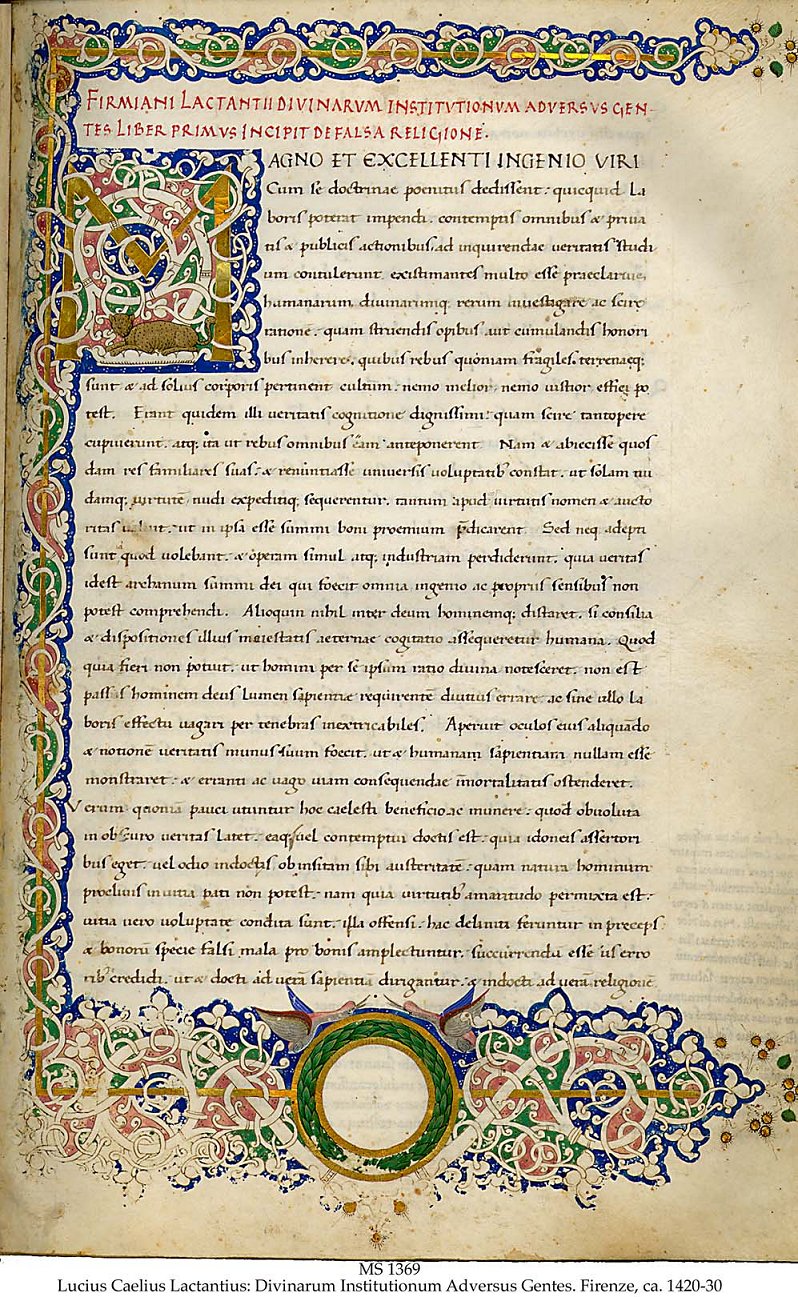 FIRMIANI LACTANTII DIVINARVM INSTITVTIONVM ADVERSVS GEN-
TES LIBER PRIMVS INCIPIT DE FALSA RELIGIONE·
MAGNO ET EXCELLENTI INGENIO VIRI
Cum se doctrinae poenitus dedissent: quicquid La
boris poterat impendi. contemptis omnibus & priua
tis & publicis actionibus. ad inquirendae veritatis studi
um contulerunt. existimantes multo esse praeclarius,
humanarum, diuinarumq; rerum inuestigare ac scire
ratione: quam struendis opibus aut cumulandis honori
bus inherere. quibus rebus quoniam fragiles, terrenaeq;
sunt & ad solius corporis pertinent cultum: nemo melior, nemo iustior effici po
test. Erant quidem illi veritatis cognitione dignissimi: quam scire tantopere
cupiuerunt. atq; ita ut rebus omnibus eam anteponerent. Nam & abiecisse quos
dam res familiares suas: & renuntiasse uniuersis voluptatib; constat. ut solam nu
damq; uirtutē nudi expeditiq; sequerentur. tantum apud virtutis nomen & aucto
ritas ut in ipsa esse summi boni proemium p̄dicarent. Sed neq adepti
sunt quod volebant. & operam simul atq; industriam perdiderunt. quia veritas
idest archanum summi dei qui foecit omnia ingenio ac propriis sensibus non
potest comprehendi. Alioquin nihil inter deum hominemq; distaret. si consilia
& dispositiones illius maiestatis aeternae cogitatio assequeretur humana. Quod
quia fieri non potuit. ut homini per se ipsum ratio diuina notesceret. non est
passus hominem deus Lumen sapientiae requirentē diutius errare. ac sine ullo La
boris effectu uagari per tenebras inextricabiles. Aperuit oculos eius aliquādo
& notionē veritatis munus suum foecit. ut & humanam sapientiam nullam esse
monstraret: & erranti ac vago uiam consequendae īmortalitatis ostenderet.
Verum qūoniā pauci utuntur hoc caelesti beneficio ac munere: quod obuoluta
in obscuro veritas Latet. eaq; uel contemptui doctis est: quia idoneis assertori
bus eget. uel odio indoctis ob insitam sibi austeritatē: quam natura hominum
procliuis in uitia pati non potest: nam quia virtutib; amaritudo permixta est:
uitia uero voluptate condita sunt. illa offensi. hac deliniti feruntur in preceps
& bonorū specie falsi mala pro bonis amplectuntur. succurrendū esse iis erro
rib; credidi. ut & docti ad uerā sapientiā dirigantur. & indocti ad uerā religionē
MS 1369
Lucius Caelius Lactantius: Divinarum Institutionum Adversus Gentes. Firenze, ca. 1420-30